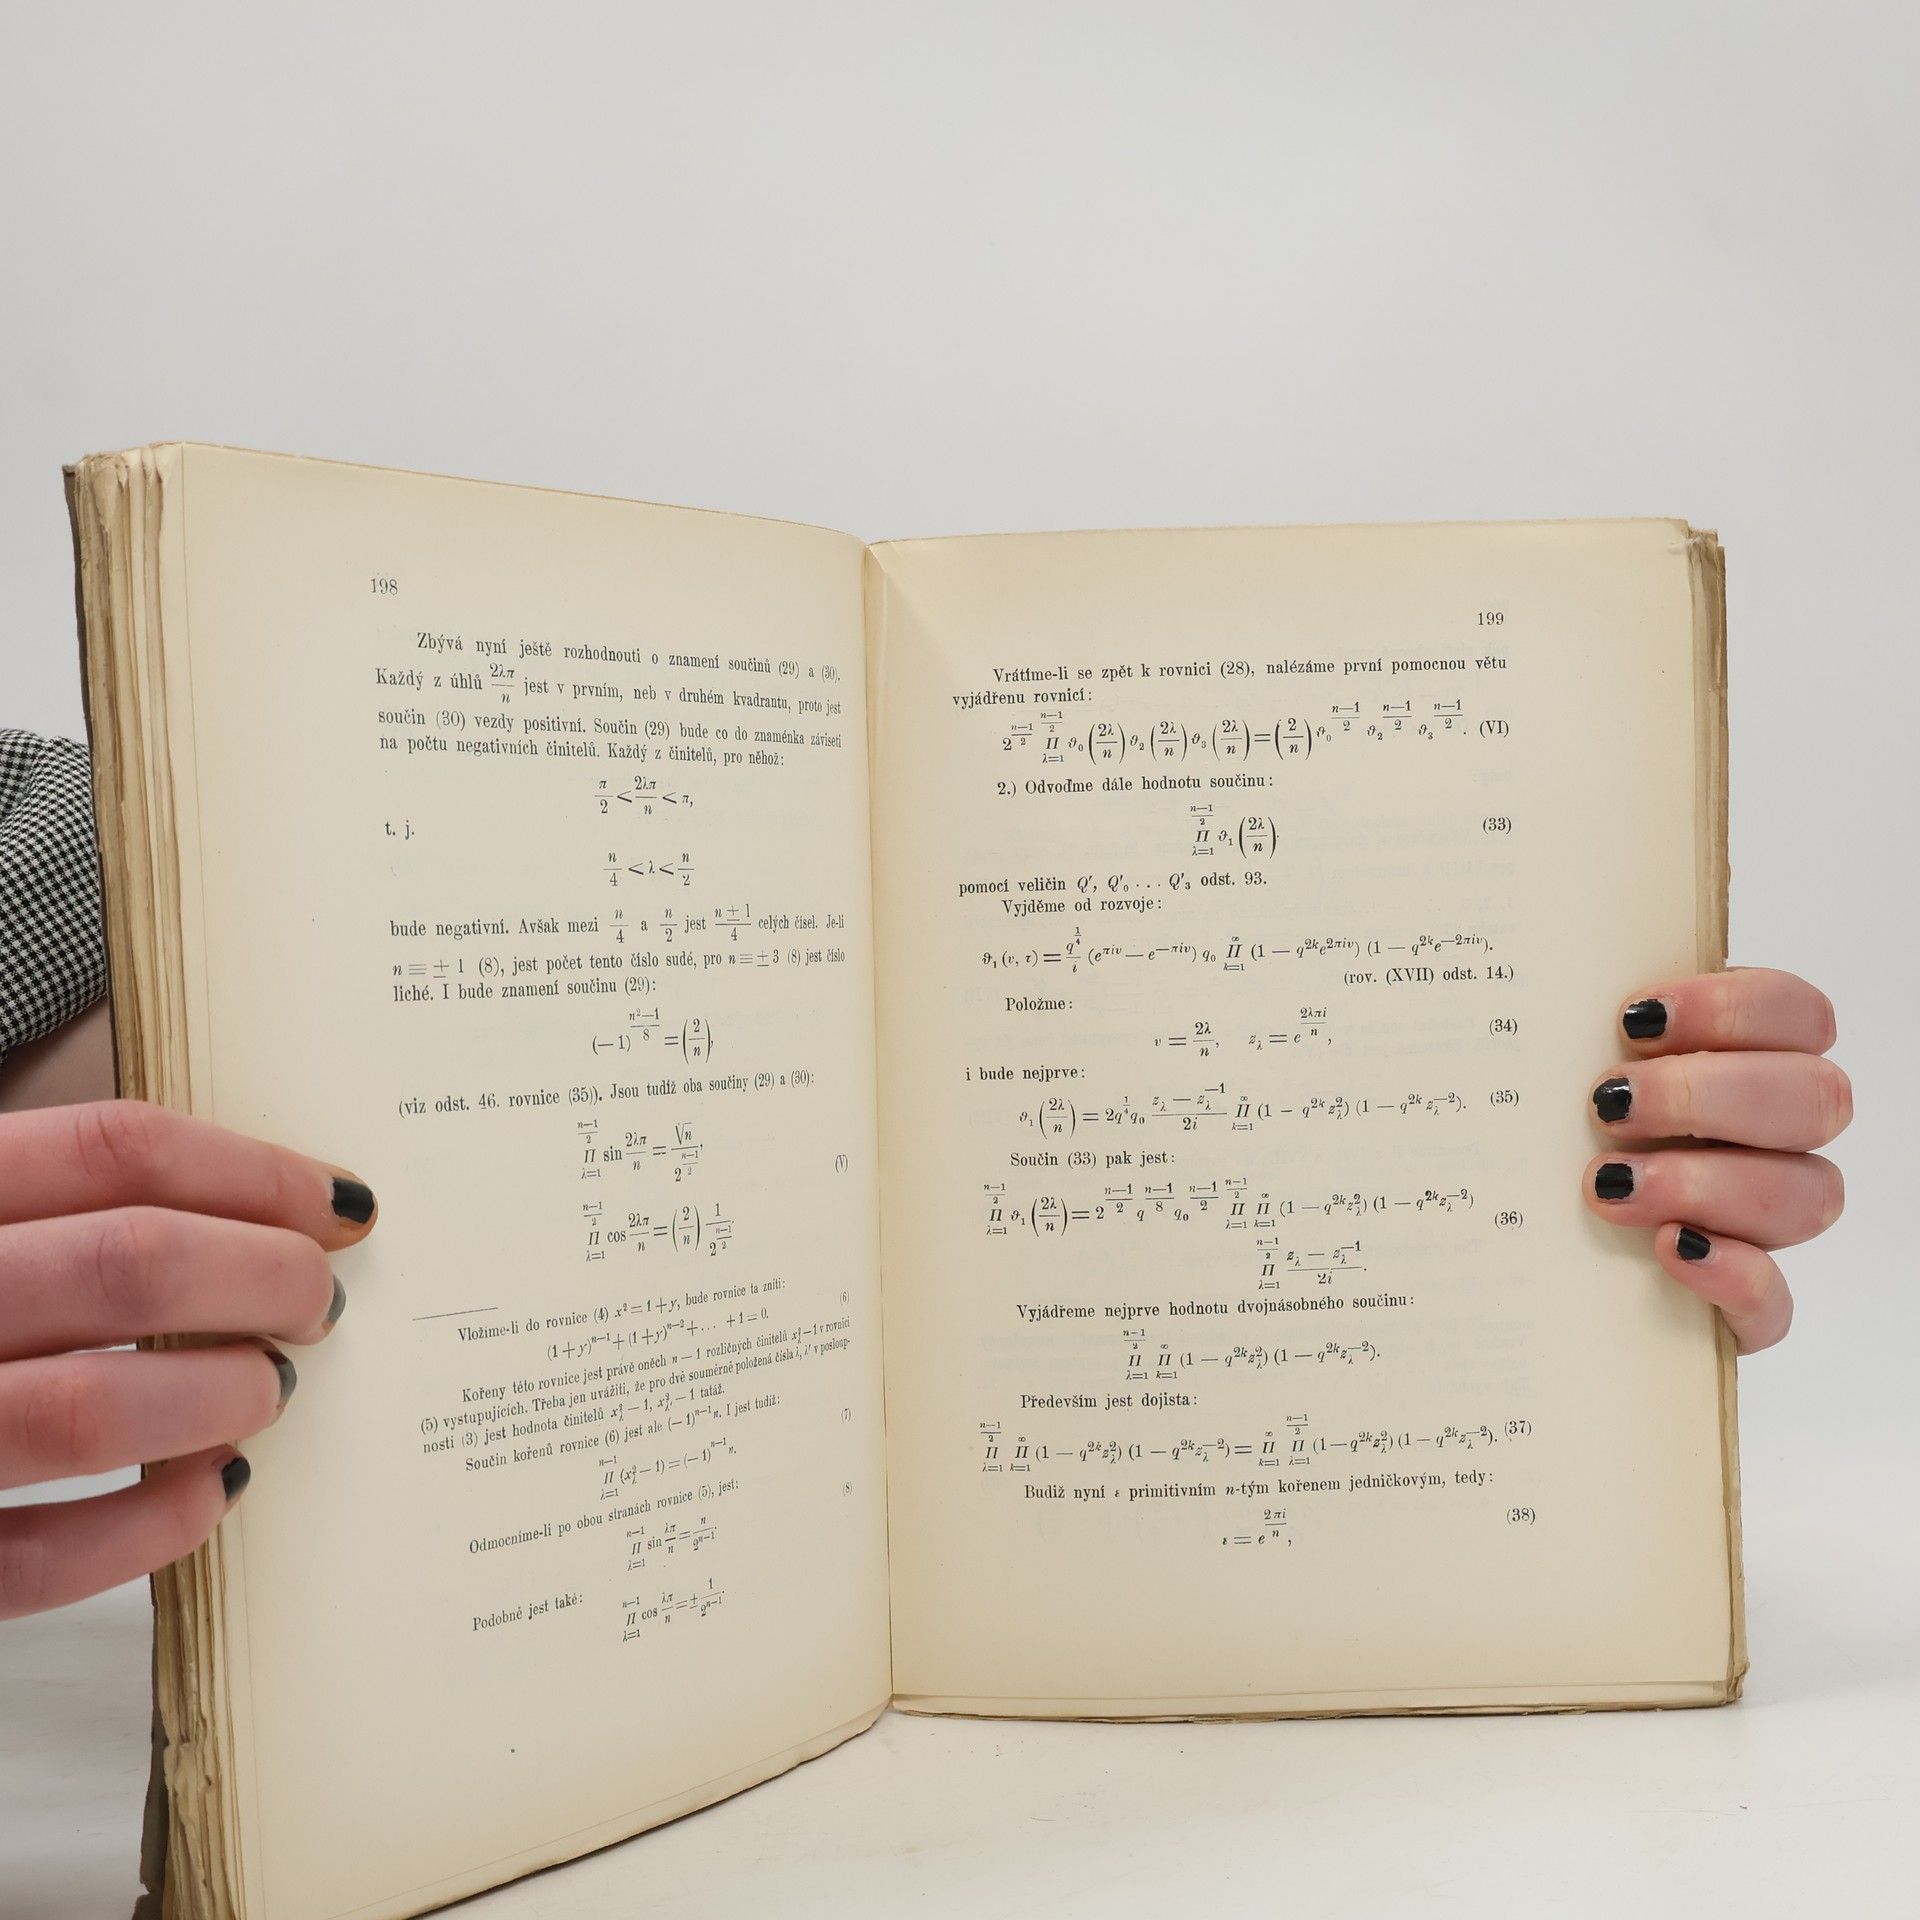 198
Zbývá nyní ještě rozhodnouti o znamení součinů (29) a (30).
Každý z úhlů 2λπ/n jest v prvním, neb v druhém kvadrantu, proto jest
součin (30) vezdy positivní. Součin (29) bude co do znaménka záviseti
na počtu negativních činitelů. Každý z činitelů, pro něhož:
π/2 < 2λπ/n < π,
t. j.
n/4 < λ < n/2
bude negativní. Avšak mezi n/4 a n/2 jest (n ± 1)/4 celých čísel. Je-li
n ≡ ± 1 (8), jest počet tento číslo sudé, pro n ≡ ± 3 (8) jest číslo
liché. I bude znamení součinu (29):
(−1)^((n²−1)/8) = (2/n),
(viz odst. 46. rovnice (35)). Jsou tudíž oba součiny (29) a (30):
Π_{λ=1}^{(n−1)/2} sin 2λπ/n = √n / 2^((n−1)/2),
(V)
Π_{λ=1}^{(n−1)/2} cos 2λπ/n = (2/n) 1 / 2^((n−1)/2).
Vložíme-li do rovnice (4) x² = 1 + y, bude rovnice ta zníti:
(1 + y)^(n−1) + (1 + y)^(n−2) + ... + 1 = 0. (6)
Kořeny této rovnice jest právě oněch n − 1 rozličných činitelů x_λ² − 1 v rovnici
(5) vystupujících. Třeba jen uvážiti, že pro dvě souměrně položená čísla λ, λ' v posloup-
nosti (3) jest hodnota činitelů x_λ² − 1, x_λ'² − 1 tatáž.
Součin kořenů rovnice (6) jest ale (−1)^(n−1) n. I jest tudíž:
Π_{λ=1}^{n−1} (x_λ² − 1) = (−1)^(n−1) n. (7)
Odmocníme-li po obou stranách rovnice (5), jest:
Π_{λ=1}^{n−1} sin λπ/n = n / 2^(n−1). (8)
Podobně jest také:
Π_{λ=1}^{n−1} cos λπ/n = ± 1 / 2^(n−1).
199
Vrátíme-li se zpět k rovnici (28), nalézáme první pomocnou větu
vyjádřenu rovnicí:
2^((n−1)/2) Π_{λ=1}^{(n−1)/2} ϑ₀(2λ/n) ϑ₂(2λ/n) ϑ₃(2λ/n) = (2/n) ϑ₀^((n−1)/2) ϑ₂^((n−1)/2) ϑ₃^((n−1)/2). (VI)
2.) Odvoďme dále hodnotu součinu:
Π_{λ=1}^{(n−1)/2} ϑ₁(2λ/n). (33)
pomocí veličin Q', Q'₀ . . . Q'₃ odst. 93.
Vyjděme od rozvoje:
ϑ₁ (v, τ) = q^(1/4)/i (e^(πiv) − e^(−πiv)) q₀ Π_{k=1}^{∞} (1 − q^(2k)e^(2πiv)) (1 − q^(2k)e^(−2πiv)).
(rov. (XVII) odst. 14.)
Položme:
v = 2λ/n, z_λ = e^(2λπi/n), (34)
i bude nejprve:
ϑ₁(2λ/n) = 2q^(1/4) q₀ (z_λ − z_λ^(−1))/2i Π_{k=1}^{∞} (1 − q^(2k) z_λ²) (1 − q^(2k) z_λ^(−2)). (35)
Součin (33) pak jest:
Π_{λ=1}^{(n−1)/2} ϑ₁(2λ/n) = 2^((n−1)/2) q^((n−1)/8) q₀^((n−1)/2) Π_{λ=1}^{(n−1)/2} Π_{k=1}^{∞} (1 − q^(2k)z_λ²) (1 − q^(2k)z_λ^(−2))
(36)
Π_{λ=1}^{(n−1)/2} (z_λ − z_λ^(−1))/2i.
Vyjádřeme nejprve hodnotu dvojnásobného součinu:
Π_{λ=1}^{(n−1)/2} Π_{k=1}^{∞} (1 − q^(2k)z_λ²) (1 − q^(2k)z_λ^(−2)).
Především jest dojista:
Π_{λ=1}^{(n−1)/2} Π_{k=1}^{∞} (1 − q^(2k)z_λ²) (1 − q^(2k)z_λ^(−2)) = Π_{k=1}^{∞} Π_{λ=1}^{(n−1)/2} (1 − q^(2k)z_λ²) (1 − q^(2k)z_λ^(−2)). (37)
Budiž nyní ε primitivním n-tým kořenem jedničkovým, tedy:
ε = e^(2πi/n), (38)